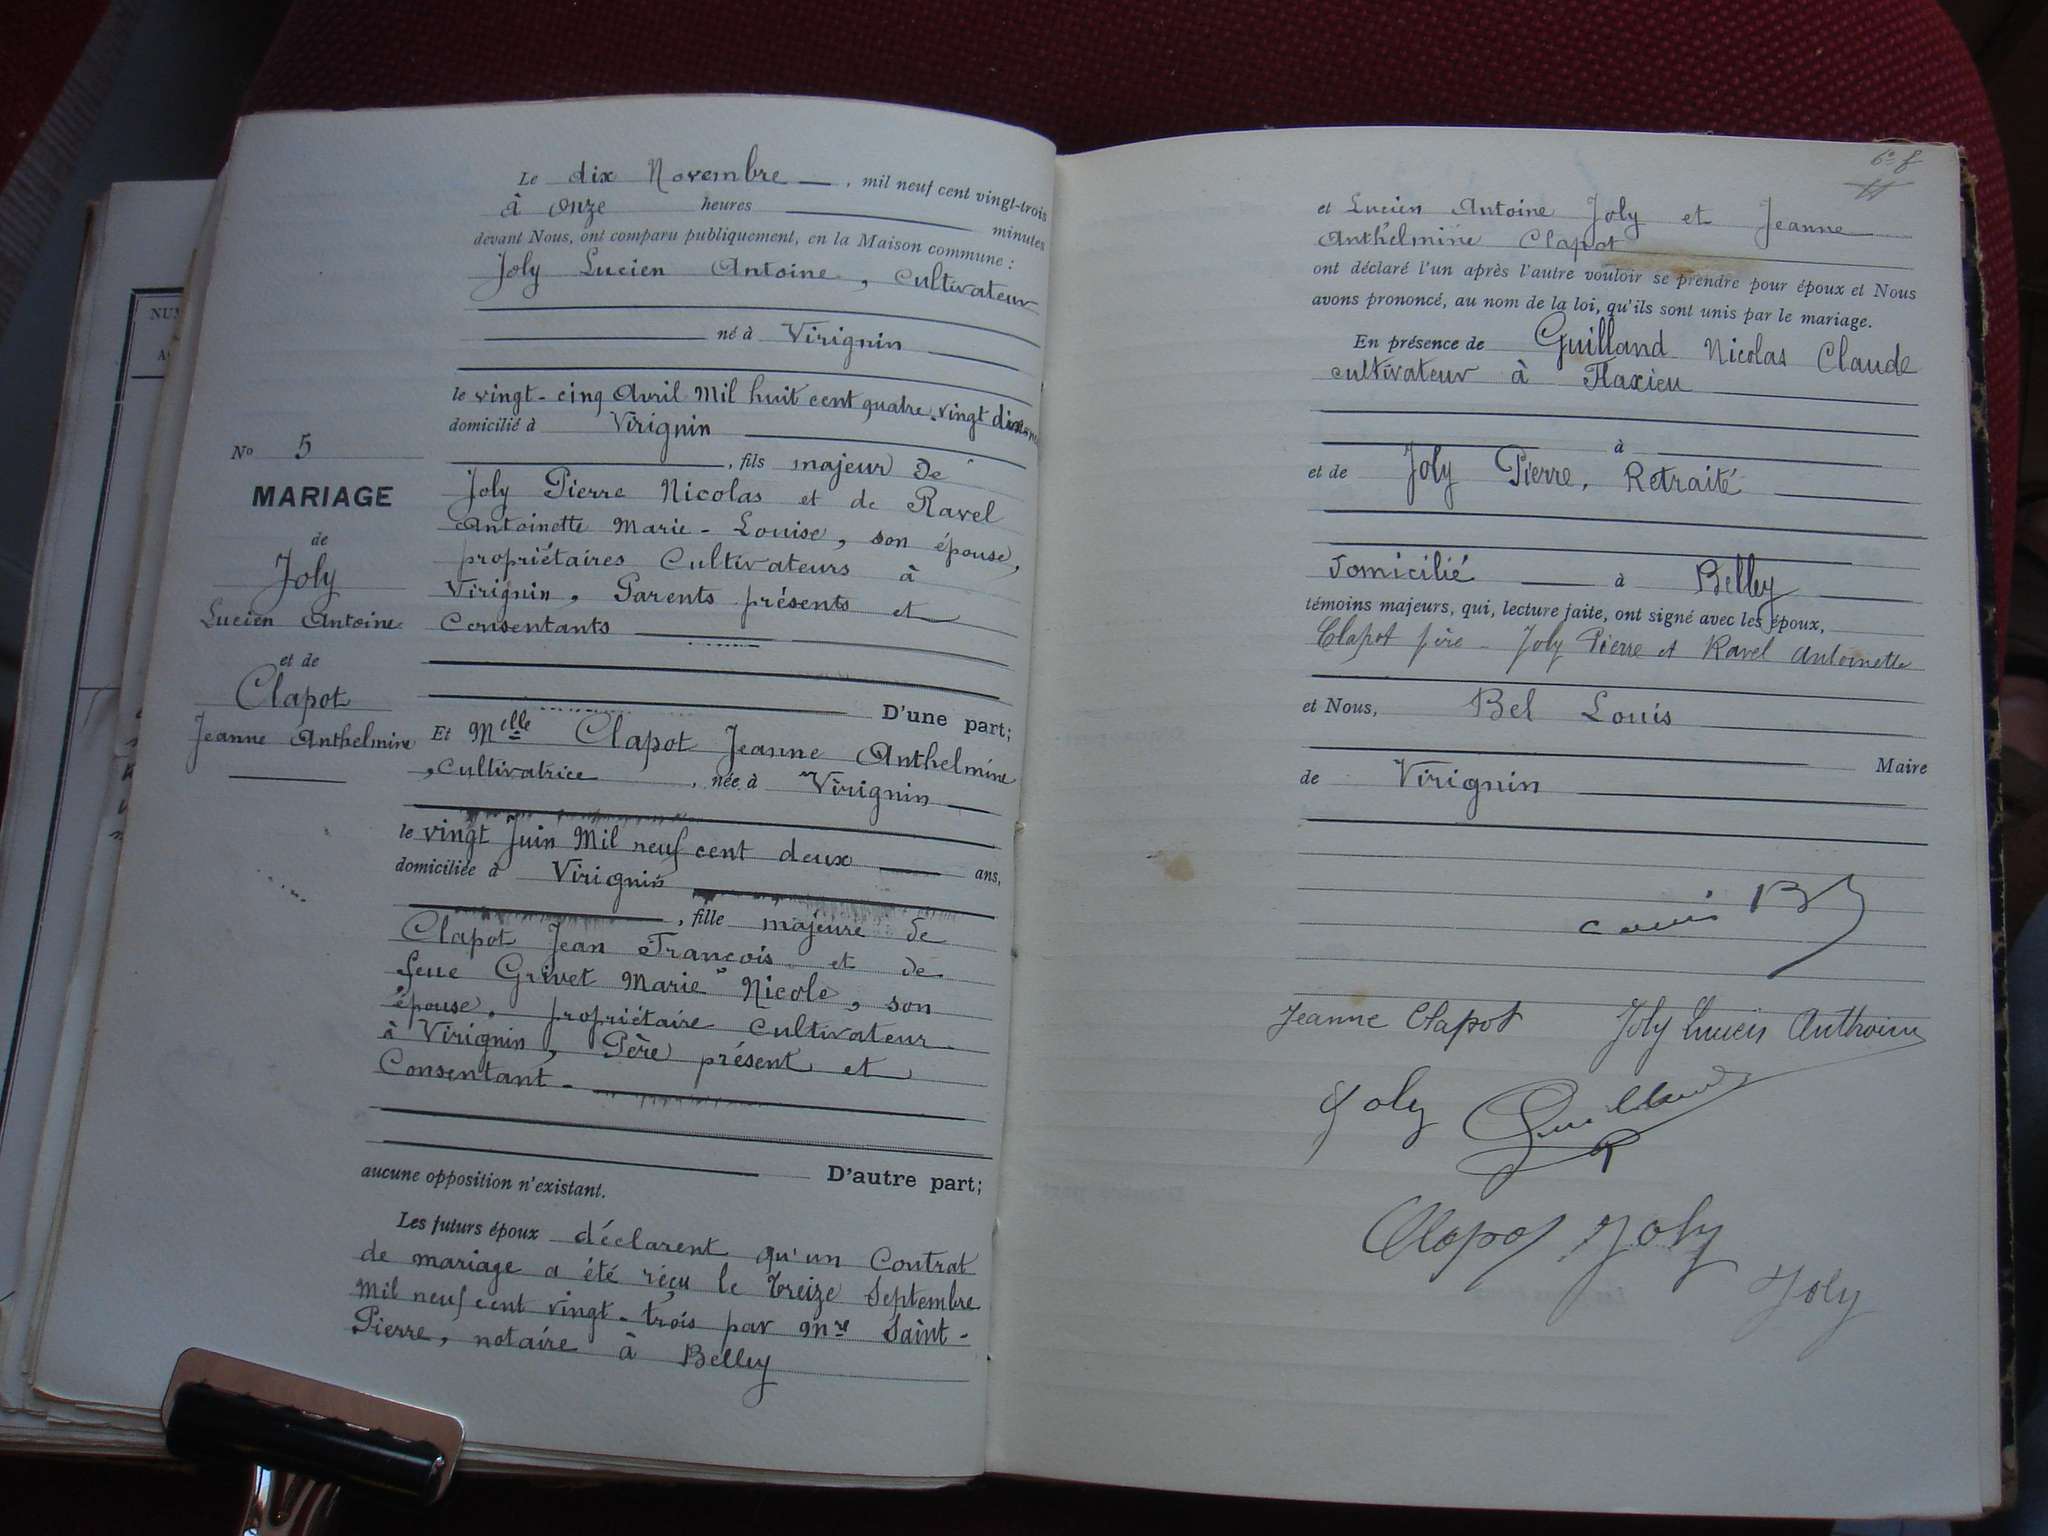 NUM
Le dix Novembre, mil neuf cent vingt-trois
à onze heures minutes
devant Nous, ont comparu publiquement, en la Maison commune :
Joly Lucien Antoine, cultivateur
né à Virignin
le vingt-cinq Avril Mil huit cent quatre-vingt
domicilié à Virignin
, fils majeur De
Joly Pierre Nicolas et de Ravel
Antoinette Marie-Louise, son épouse,
propriétaires Cultivateurs à
Virignin, Parents présents et
Consentants
D'une part;
Et Melle Clapot Jeanne Anthelmine
, cultivatrice, née à Virignin
le vingt Juin Mil neuf cent deux ans,
domiciliée à Virignin
, fille majeure de
Clapot Jean François et de
feue Grivet Marie Nicole, son
épouse, propriétaire cultivateur
à Virignin, Père présent et
Consentant.
D'autre part;
aucune opposition n'existant.
Les futurs époux déclarent qu'un Contrat
de mariage a été réçu le treize Septembre
Mil neuf cent vingt-trois par Mre Saint-
Pierre, notaire à Belley
No 5
MARIAGE
de
Joly
Lucien Antoine
et de
Clapot
Jeanne Anthelmine
et Lucien Antoine Joly et Jeanne
Anthelmine Clapot
ont déclaré l'un après l'autre vouloir se prendre pour époux et Nous
avons prononcé, au nom de la loi, qu'ils sont unis par le mariage.
En présence de Guilland Nicolas Claude
cultivateur à Flaxieu
à
et de Joly Pierre, Retraité
Domicilié à Belley
témoins majeurs, qui, lecture faite, ont signé avec les époux,
Clapot père - Joly Pierre et Ravel Antoinette
et Nous, Bel Louis
Maire
de Virignin
Jeanne Clapot Joly Lucien Anthoine
Joly Guilland
Clapot Joly
Joly